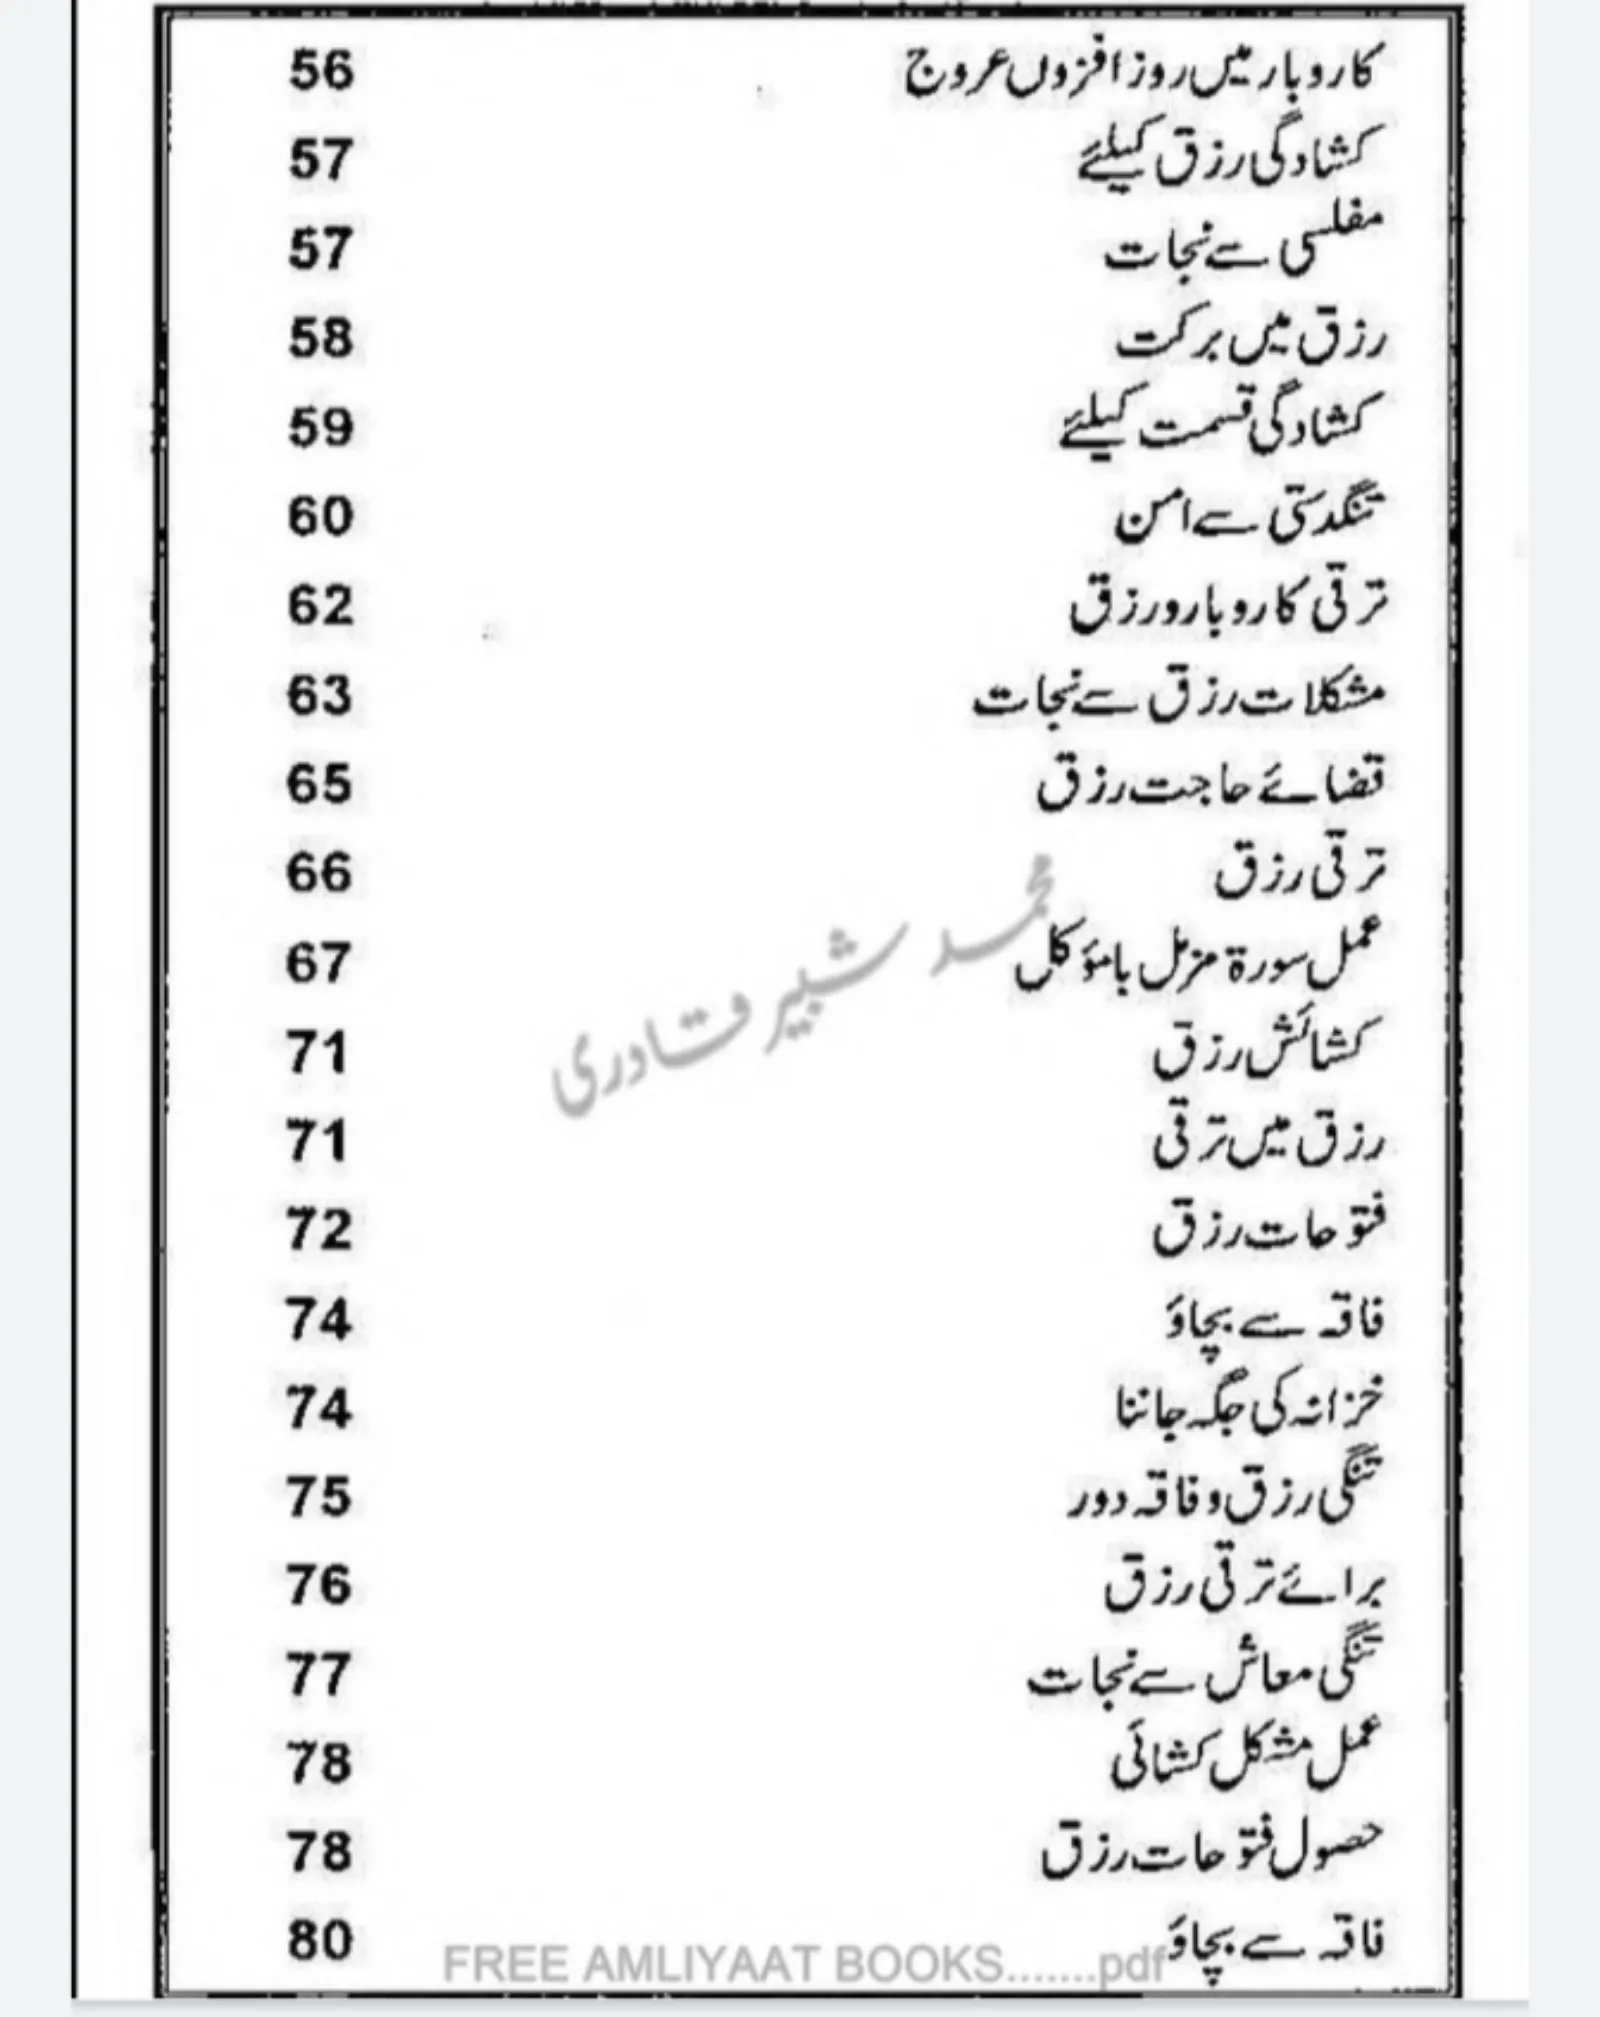 کاروبار میں روز افزوں عروج 56
کشادگی رزق کیلئے 57
مفلسی سے نجات 57
رزق میں برکت 58
کشادگی قسمت کیلئے 59
تنگدستی سے امن 60
ترقی کاروبار و رزق 62
مشکلات رزق سے نجات 63
قضائے حاجت رزق 65
ترقی رزق 66
عمل سورة مزمل بامؤکل 67
محمد شبیر قادری
کشائش رزق 71
رزق میں ترقی 71
فتوحات رزق 72
فاقہ سے بچاؤ 74
خزانہ کی جگہ جاننا 74
تنگی رزق و فاقہ دور 75
برائے ترقی رزق 76
تنگی معاش سے نجات 77
عمل مشکل کشائی 78
حصول فتوحات رزق 78
فاقہ سے بچاؤ 80
FREE AMLIYAAT BOOKS.......pdf